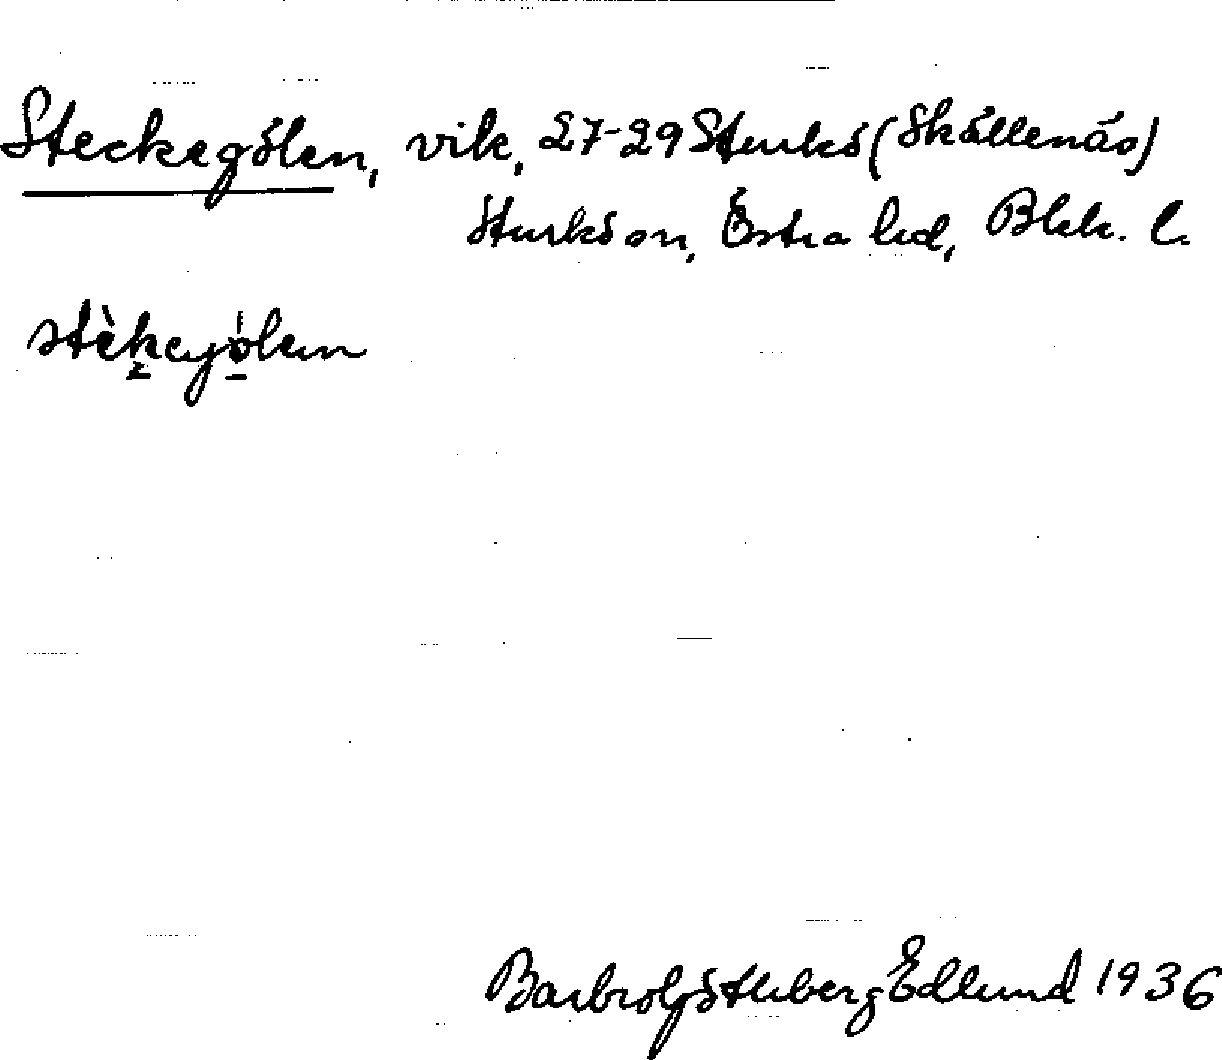 Steckegölen, vik, 27-29 Sturkö (Skällenäs)
Sturkö sn, Östra hd, Blek. l.
stèkegölen
Barbro Götheberg Edlund 1936